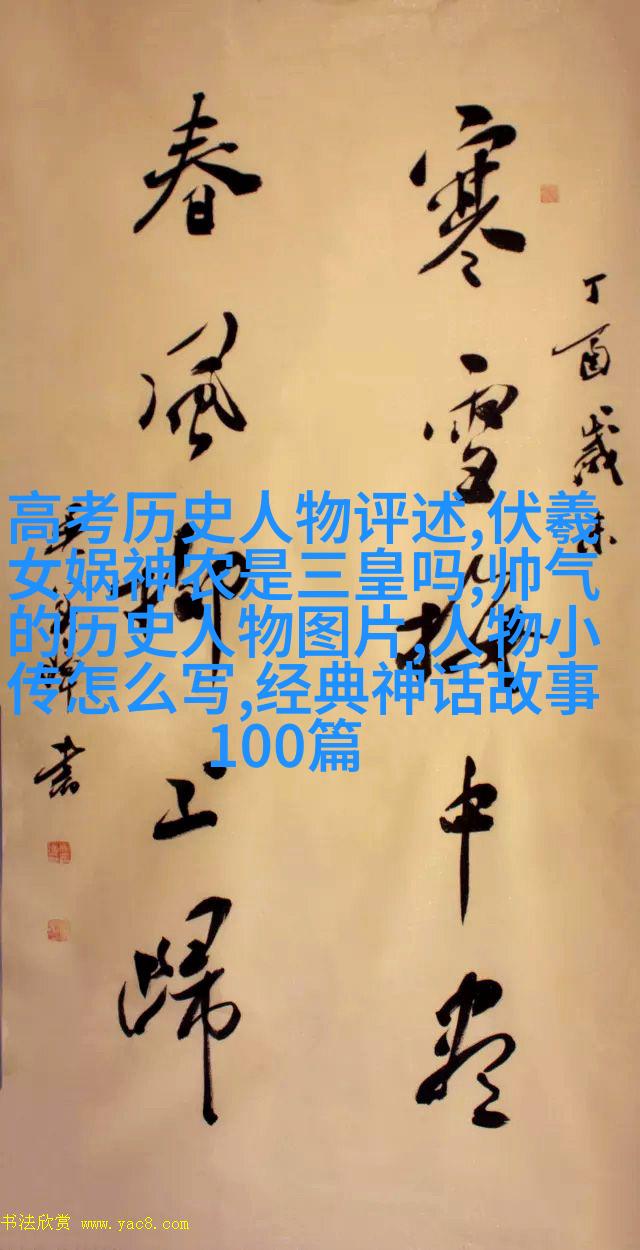 丁酉歲末
寒雪梅中尽
春風柳上歸
書
高考历史人物评述,伏羲
女娲神农是三皇吗,帅气
的历史人物图片,人物小
传怎么写,经典神话故事
100篇
书法欣赏 www.yac8.com